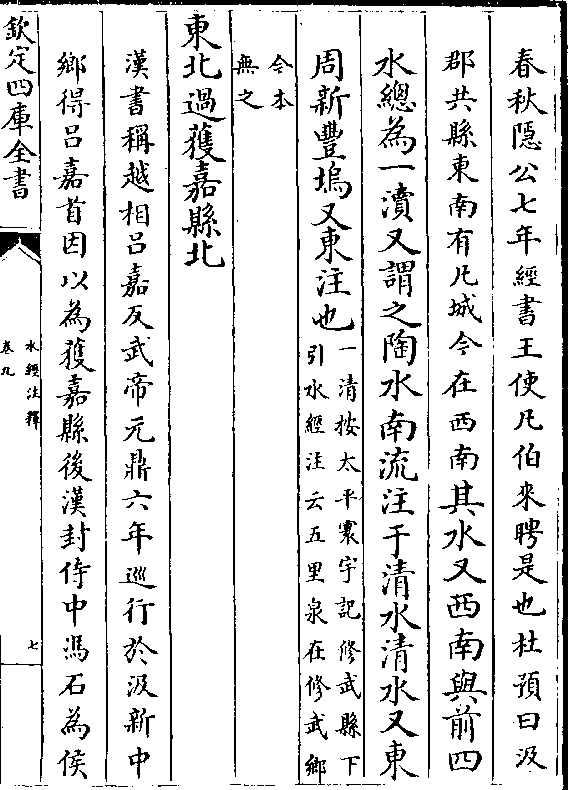 春秋隠公七年經書王使凡伯來聘是也杜預曰汲
郡共縣東南有凡城今在西南其水又西南與前四
水總為一瀆又謂之陶水南流注于清水清水又東
周新豐塢又東注也一清按太平寰宇記修武縣下
引水經注云五里泉在修武鄉
今本
無之
東北過獲嘉縣北
漢書稱越相吕嘉反武帝元鼎六年巡行於汲新中
鄉得吕嘉首因以為獲嘉縣後漢封侍中馮石為侯
欽定四庫全書
水經注釋
卷九
七